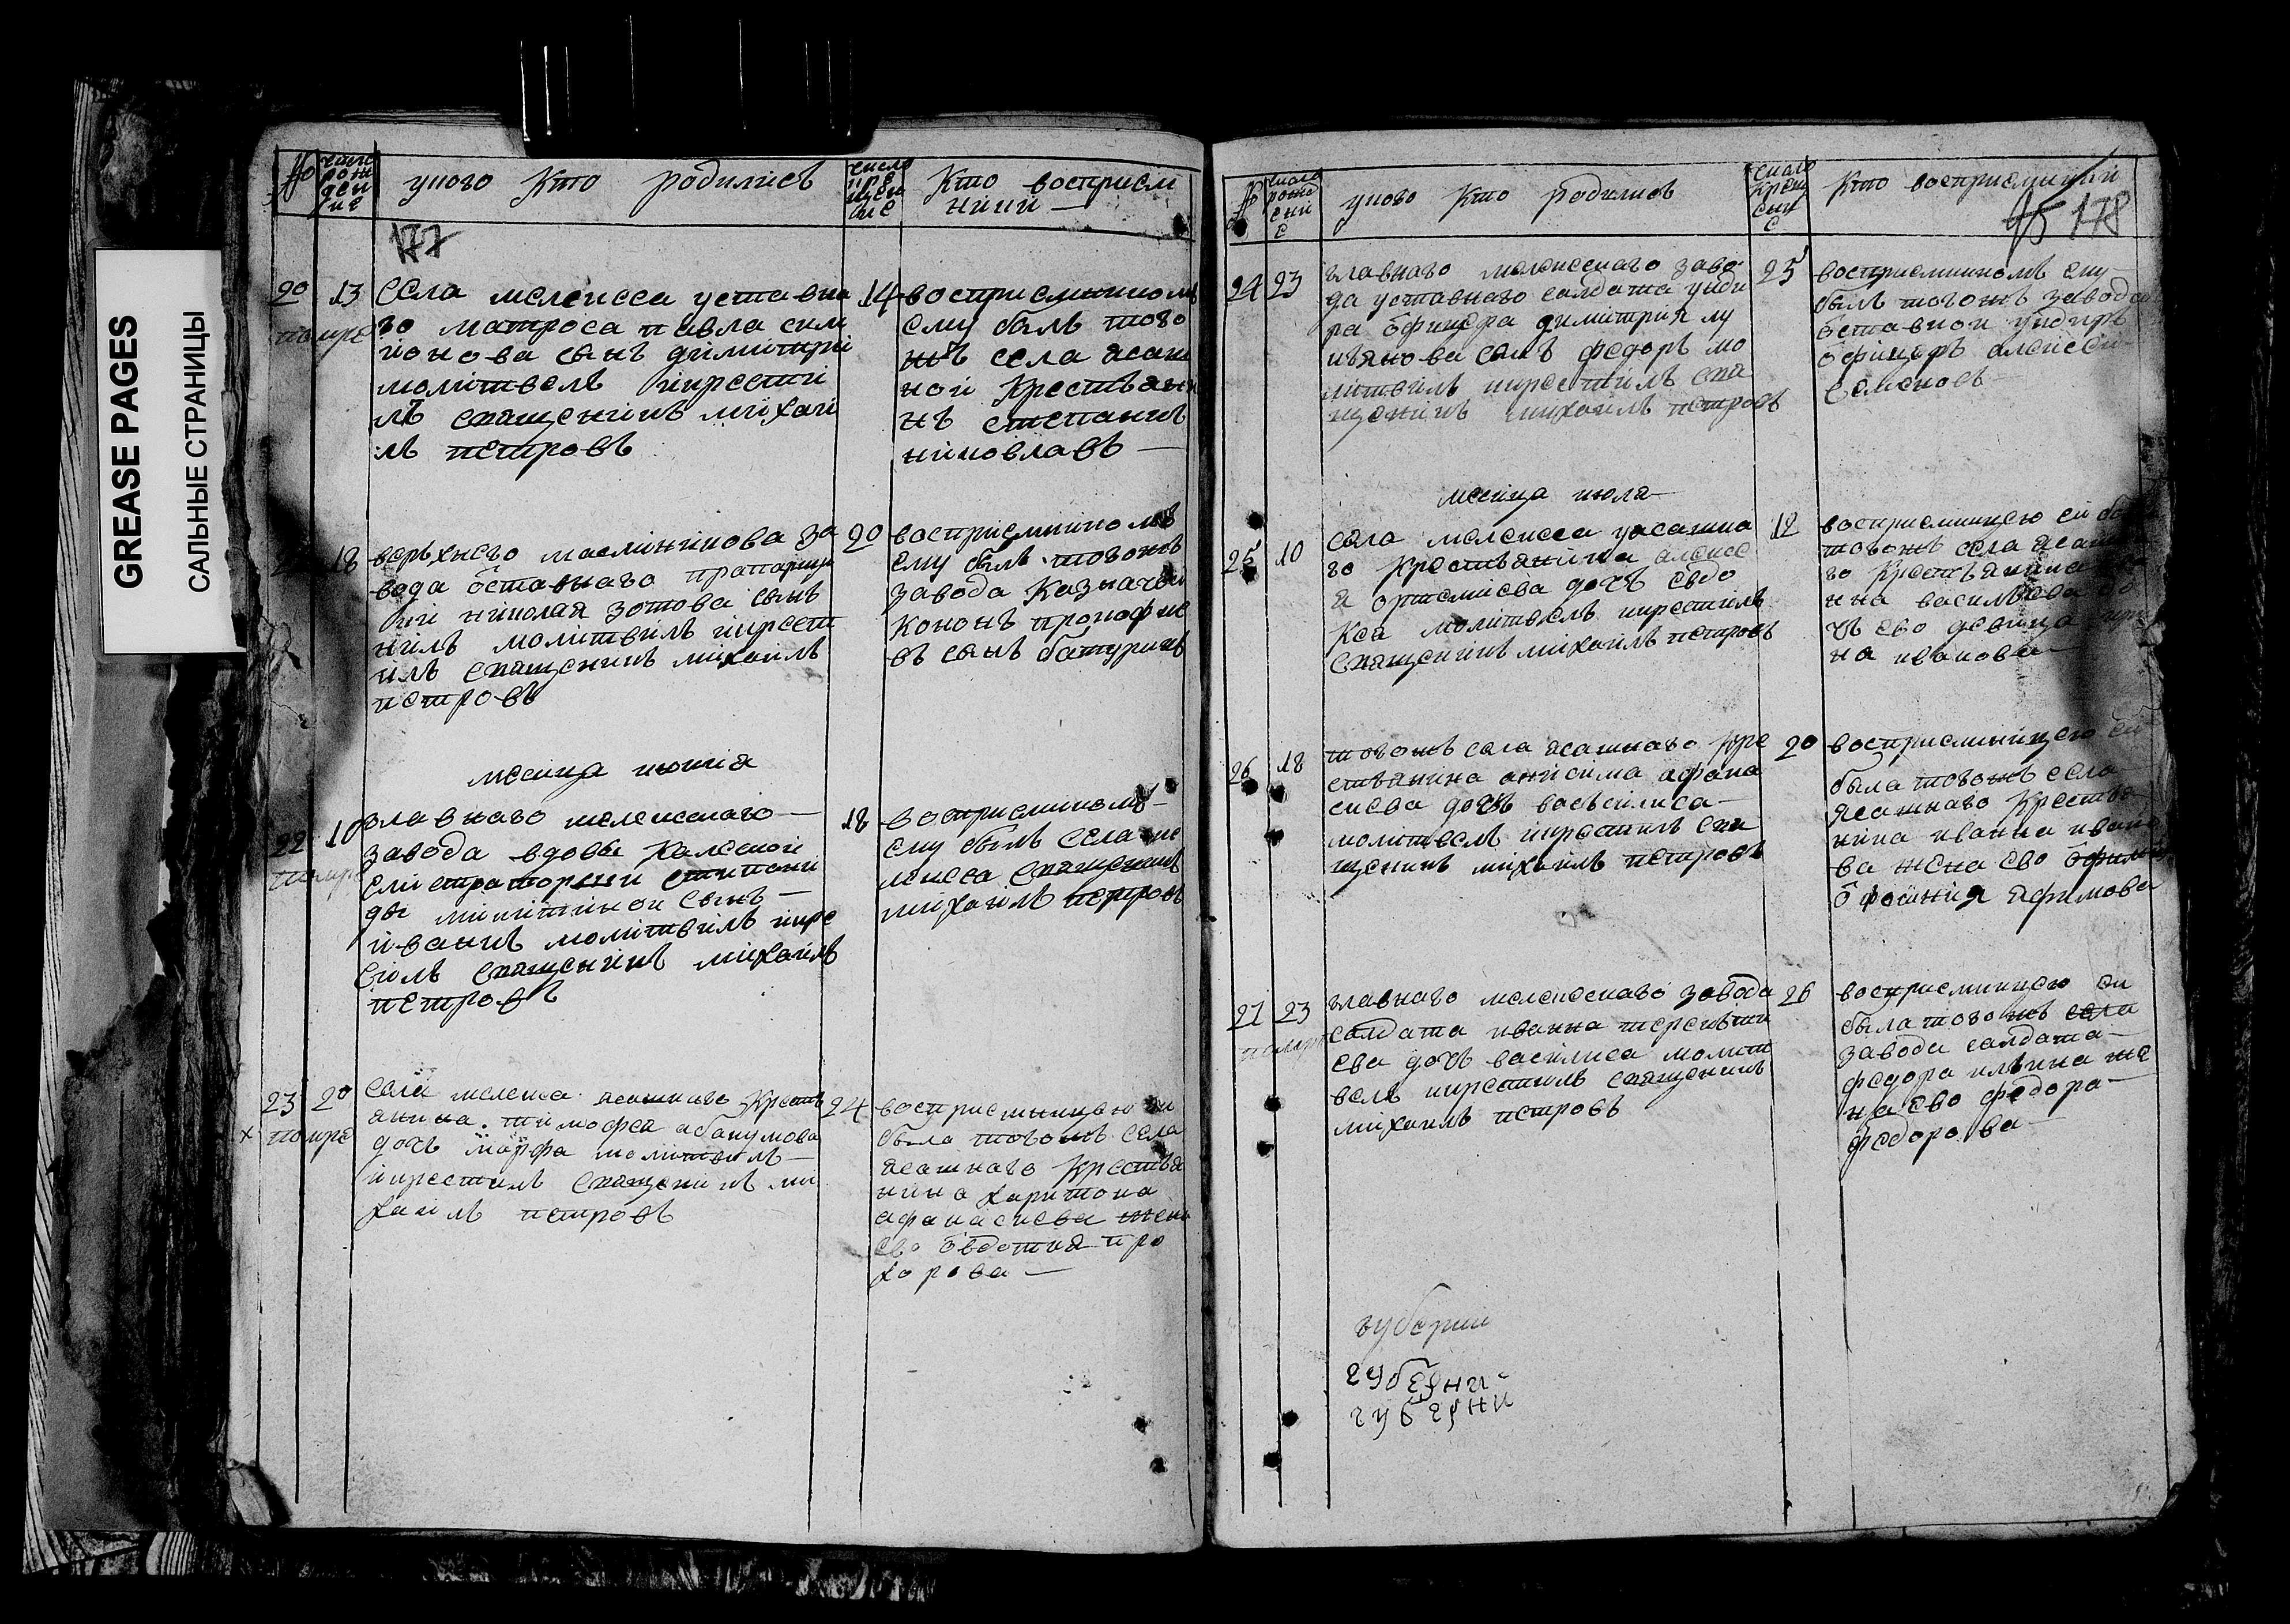 GREASE PAGES
САЛЬНЫЕ СТРАНИЦЫ
№
число
рож
ден
ие
у кого Кто родились
число
кре
щен
ие
Кто восприем
ники
177
20
помре
13
села мелекеса уставна
го матроса павла сим
ионова сынъ димитри
молитвелъ икрести
лъ священикъ михаи
лъ петровъ
14
восприемникомъ
ему былъ того
жъ села ясаш
ной крестьяни
нъ степанъ
18
верьхнего маслиникова за
вода отставнаго прапорщи
николая зотова сынъ
молитвилъ икрест
илъ священикъ михаилъ
петровъ
20
восприемникомъ
ему былъ тогожъ
завода Казначеи
кононъ прокофие
въ сынъ батуринъ
месяца июния
22
помре
10
главнаго мелекескаго
завода вдовы Колеской
степани
ды микитиной сынъ
иванъ молитвилъ икре
стилъ священикъ михаилъ
петровъ
18
восприемникомъ
ему былъ села ме
лекеса священикъ
михаилъ петровъ
23
помре
20
села мелекеса ясашнаго крестъ
янина тимофея абакумова
дочь марфа молитвилъ
икрестилъ священикъ ми
хаилъ петровъ
24
восприемницею ей
была тогожъ села
ясашнаго крестья
нина харитона
афанасиева жена
ево овдотия про
хорова
№
число
рож
ени
е
у кого Кто родился
число
крещ
ени
е
Кто восприемникъ
95 178
24
23
главнаго мелекескаго заво
да уставнаго салдата унде
ра офицера димитрия лу
кьянова сынъ федоръ мо
литвилъ икрестилъ свя
щеникъ михаилъ петровъ
25
восприемникомъ ему
былъ тогожъ завода
оставной ундиръ
офицеръ алексеи
семеновъ
месяца июля
25
10
села мелекеса ясашна
го крестьянина алексе
я ортемиева дочь евдо
кея молитвелъ икрестилъ
священикъ михаилъ петровъ
12
восприемницею ей была
тогожъ села ясашна
го крестьянина
нна василиева до
чь ево девица
на иванова
26
18
тогожъ села ясашнаго кре
стьянина анисима афана
сиева дочь васъсилиса
молитвелъ икрестилъ свя
щеникъ михаилъ петровъ
20
восприемницею ей
была тогожъ села
ясашнаго крестья
нина иванна ивано
ва жена ево
офросиния яфимова
27
помре
23
главнаго мелекескаго завода
салдата иванна терентии
ева дочь василиса молит
велъ икрестилъ священикъ
михаилъ петровъ
26
восприемницею ей
была тогожъ села
завода салдата
федора ильина же
на ево федора
федорова
губернии
губерни
губерни